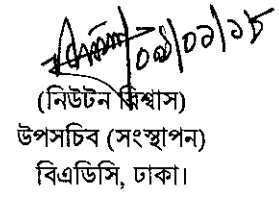 ০৯/০১/১৮
(নিউটন বিশ্বাস)
উপসচিব (সংস্থাপন)
বিএডিসি, ঢাকা।